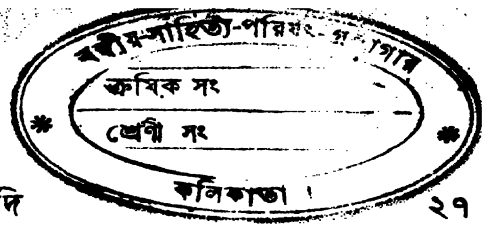 বঙ্গীয়-সাহিত্য-পরিষৎ
ক্রমিক সং
শ্রেণী সং
কলিকাতা ।
দি ২৭